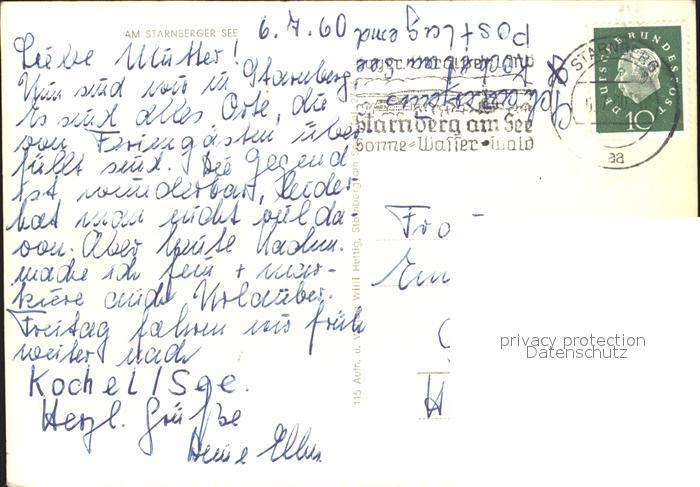 AM STARNBERGER SEE
6.7.60
Liebe Mutter!
Nun sind wir in Starnberg.
Es sind alles Orte, die
von Feriengästen über
füllt sind. Die Gegend
ist wunderbar, leider
hat man nicht viel da
von. Aber heute nachm.
mache ich fein + mar-
kiere auch Urlauber.
Freitag fahren wir früh
weiter nach
Kochel/See.
Herzl. Grüße
Deine
Kochel am See
Postlagernd
Starnberg am See
Sonne-Wasser-Wald
STARNBERG
aa
DEUTSCHE BUNDESPOST
10
115 Aufn. u. Verlag Willi Huttig, Starnberg am See
Fra
Em
H
privacy protection
Datenschutz